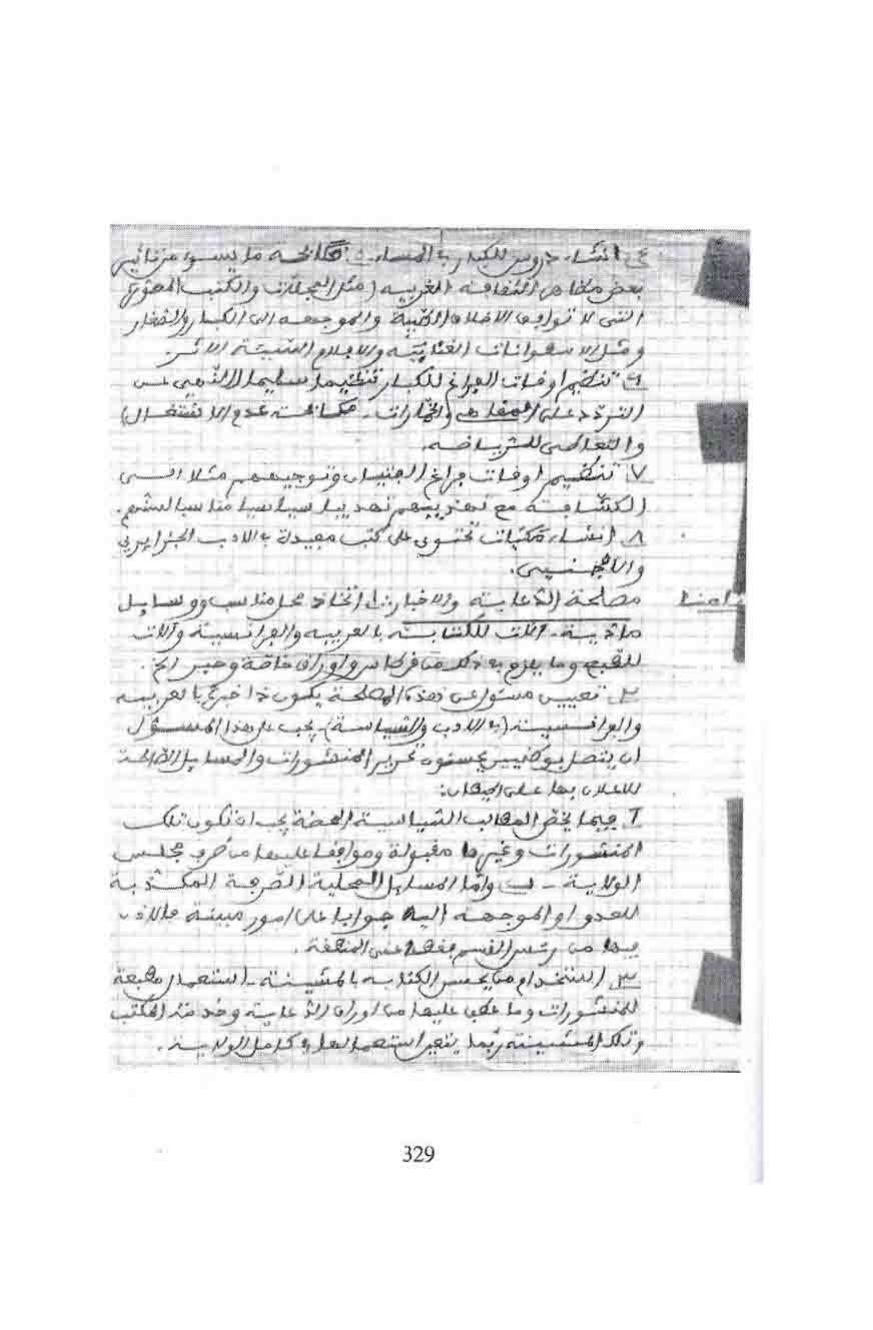 انشاء دروس للكبار بالمساء : مكافحة ما يسوء من تأثير
بعض مظاهر الثقافة الغربية (مثل المجلات والكتب المصورة
التي لا توافق الاخلاق الطيبة والموجهة الى الكبار والصغار
ومثل الاسطوانات الغنائية والافلام السيئة الاثر.
٦. تنظيم اوقات الفراغ للكبار تنظيما سليما (النهي عن
التردد على المقاهي والخمارات - مكافحة عدم الاشتغال)
والتعاطي للرياضة.
٧. تنظيم اوقات فراغ الفتيان وتوجيههم مثلا الى
الكشافة مع تهذيبهم تهذيبا سياسيا مناسبا لسنهم.
٨. إنشاء مكتبات تحتوي على كتب مفيدة بالادب الجزايري
والاجنبي.
ثامنا مصلحة الدعاية والاخبار: ١. اتخاذ محل مناسب ووسايل
مادية - آلات للكتابة بالعربية والفرانسية وآلات
للطبع وما يلزم ذلك من قرطاس واوراق خاصة وحبر الخ.
٢. تعيين مسئول عن هذه المصلحة يكون ذا خبرة بالعربية
والفرانسية (بالادب والسياسة) - يجب على هذا المسؤول
ان يتصل بوطنيين يحسنون تحرير المنشورات والمسايل الصالحة
للاعلان بها على الحيطان:
آ. فيما يخص المطالب السياسية المحضة يجب ان تكون تلك
المنشورات وغيرها مقبولة وموافقا عليها من طرف مجلس
الولاية - ب وأمّا المسايل المحلية الصرفة المكذبة
للعدو او الموجهة اليه جوابا على امور مبينة فالاذن
فيها من رئيس القسم فقط او من المنطقة.
٣. استخدام من يحسن الكتابة بالمشينة - استعمال مطبعة
للمنشورات وما طبع عليها من اوراق الدعاية وخدمة المكتب
وتلك المشينة ربما يتعين استعمالها في كامل الولاية.
329